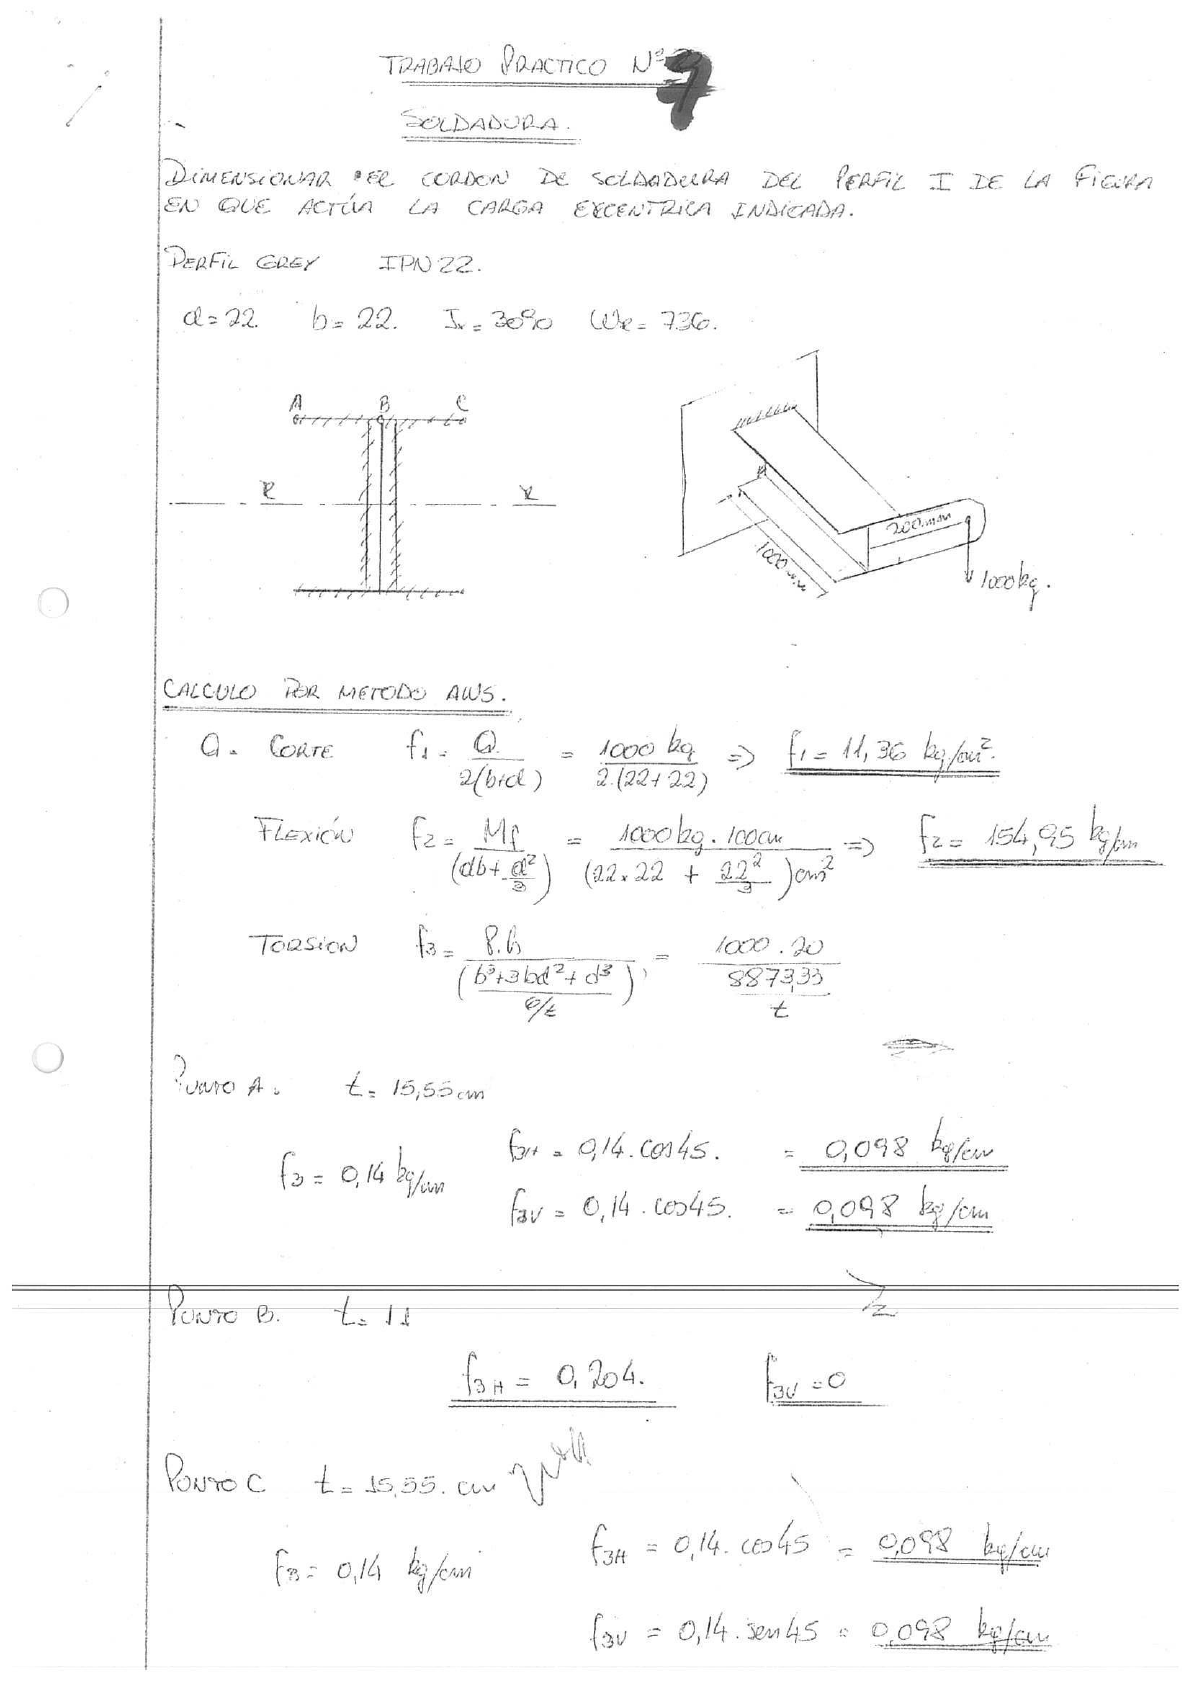 TRABAJO PRACTICO Nº 7
SOLDADURA.
DIMENSIONAR EL CORDON DE SOLDADURA DEL PERFIL I DE LA FIGURA
EN QUE ACTÚA LA CARGA EXCENTRICA INDICADA.
PERFIL GREY IPN 22.
d=22 b=22. Ix=3090 Wx=736.
A B C
x x
200mm
1000mm
1000kg.
CALCULO POR METODO AWS.
a. CORTE f1= Q/2(b+d) = 1000 kg/2.(22+22) => f1= 11,36 kg/cm².
FLEXIÓN f2= Mf/(db+d²/3) = 1000kg.100cm/(22x22 + 22²/3)cm² => f2= 154,95 kg/cm
TORSION f3= P.h/((b³+3bd²+d³)/6/t) = 1000.20/(8873,33/t)
PUNTO A. t= 15,55cm
f3H = 0,14.cos45. = 0,098 kg/cm
f3= 0,14 kg/cm
f3V = 0,14.cos45. = 0,098 kg/cm
PUNTO B. t= 11
f3H = 0,204. f3V=0
PUNTO C t= 15,55. cm
f3H = 0,14. cos45 = 0,098 kg/cm
f3= 0,14 kg/cm
f3V = 0,14.sen45 = 0,098 kg/cm